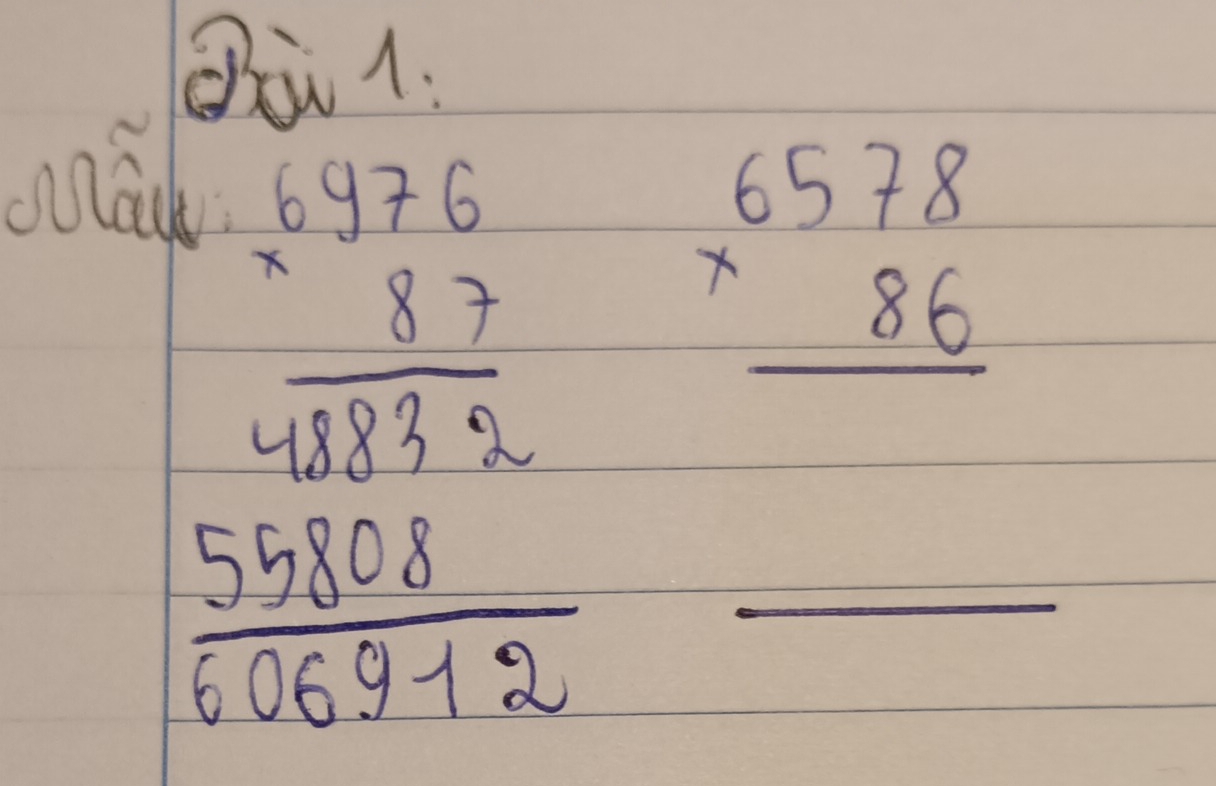 Bài 1:
Mẫu: 6976 6578
x x
87 86
48832
55808
606912